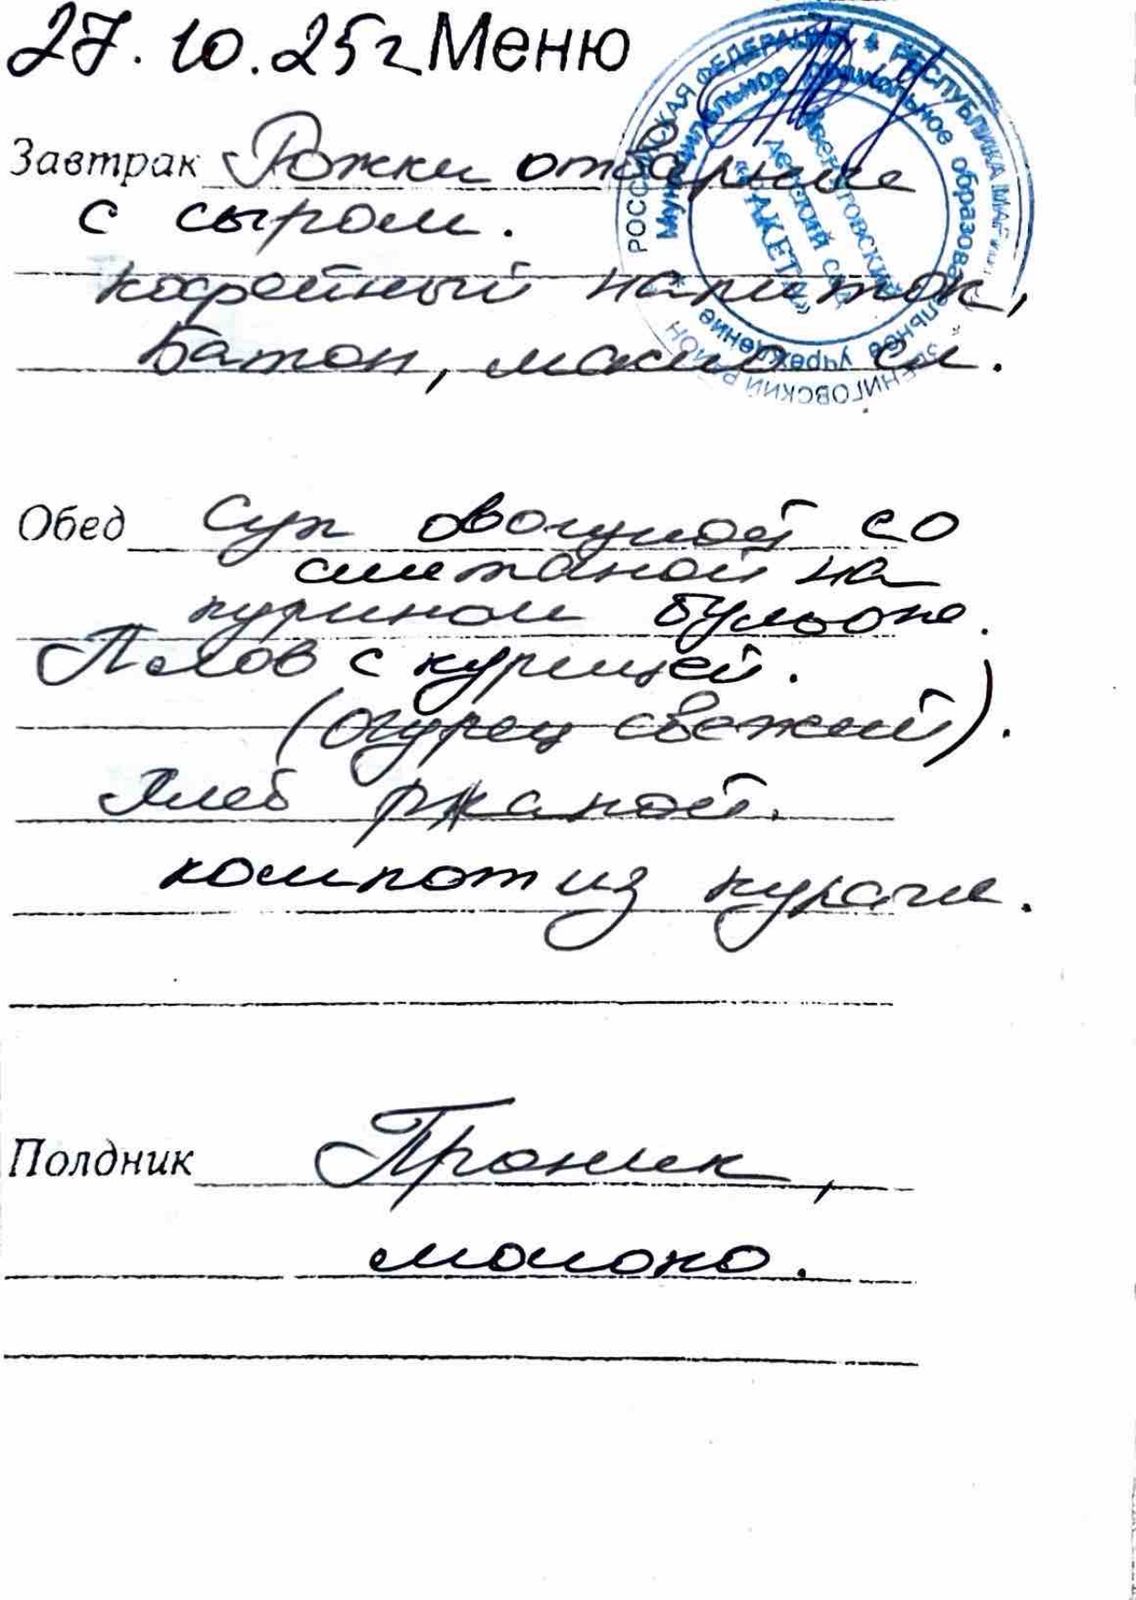 27.10.25г Меню
Завтрак Рожки отварные
с сыром.
кофейный напиток,
Батон, масло сл.
РОССИЙСКАЯ ФЕДЕРАЦИЯ * РЕСПУБЛИКА МАРИЙ
Муниципальное дошкольное образовательное учреждение
Звениговский
детский сад
«РАКЕТА»
ЗВЕНИГОВСКИЙ РАЙОН
Обед Суп овощной со
сметаной на
курином бульоне.
Плов с курицей.
(огурец свежий).
Хлеб ржаной.
компот из кураги.
Полдник Пряник,
молоко.